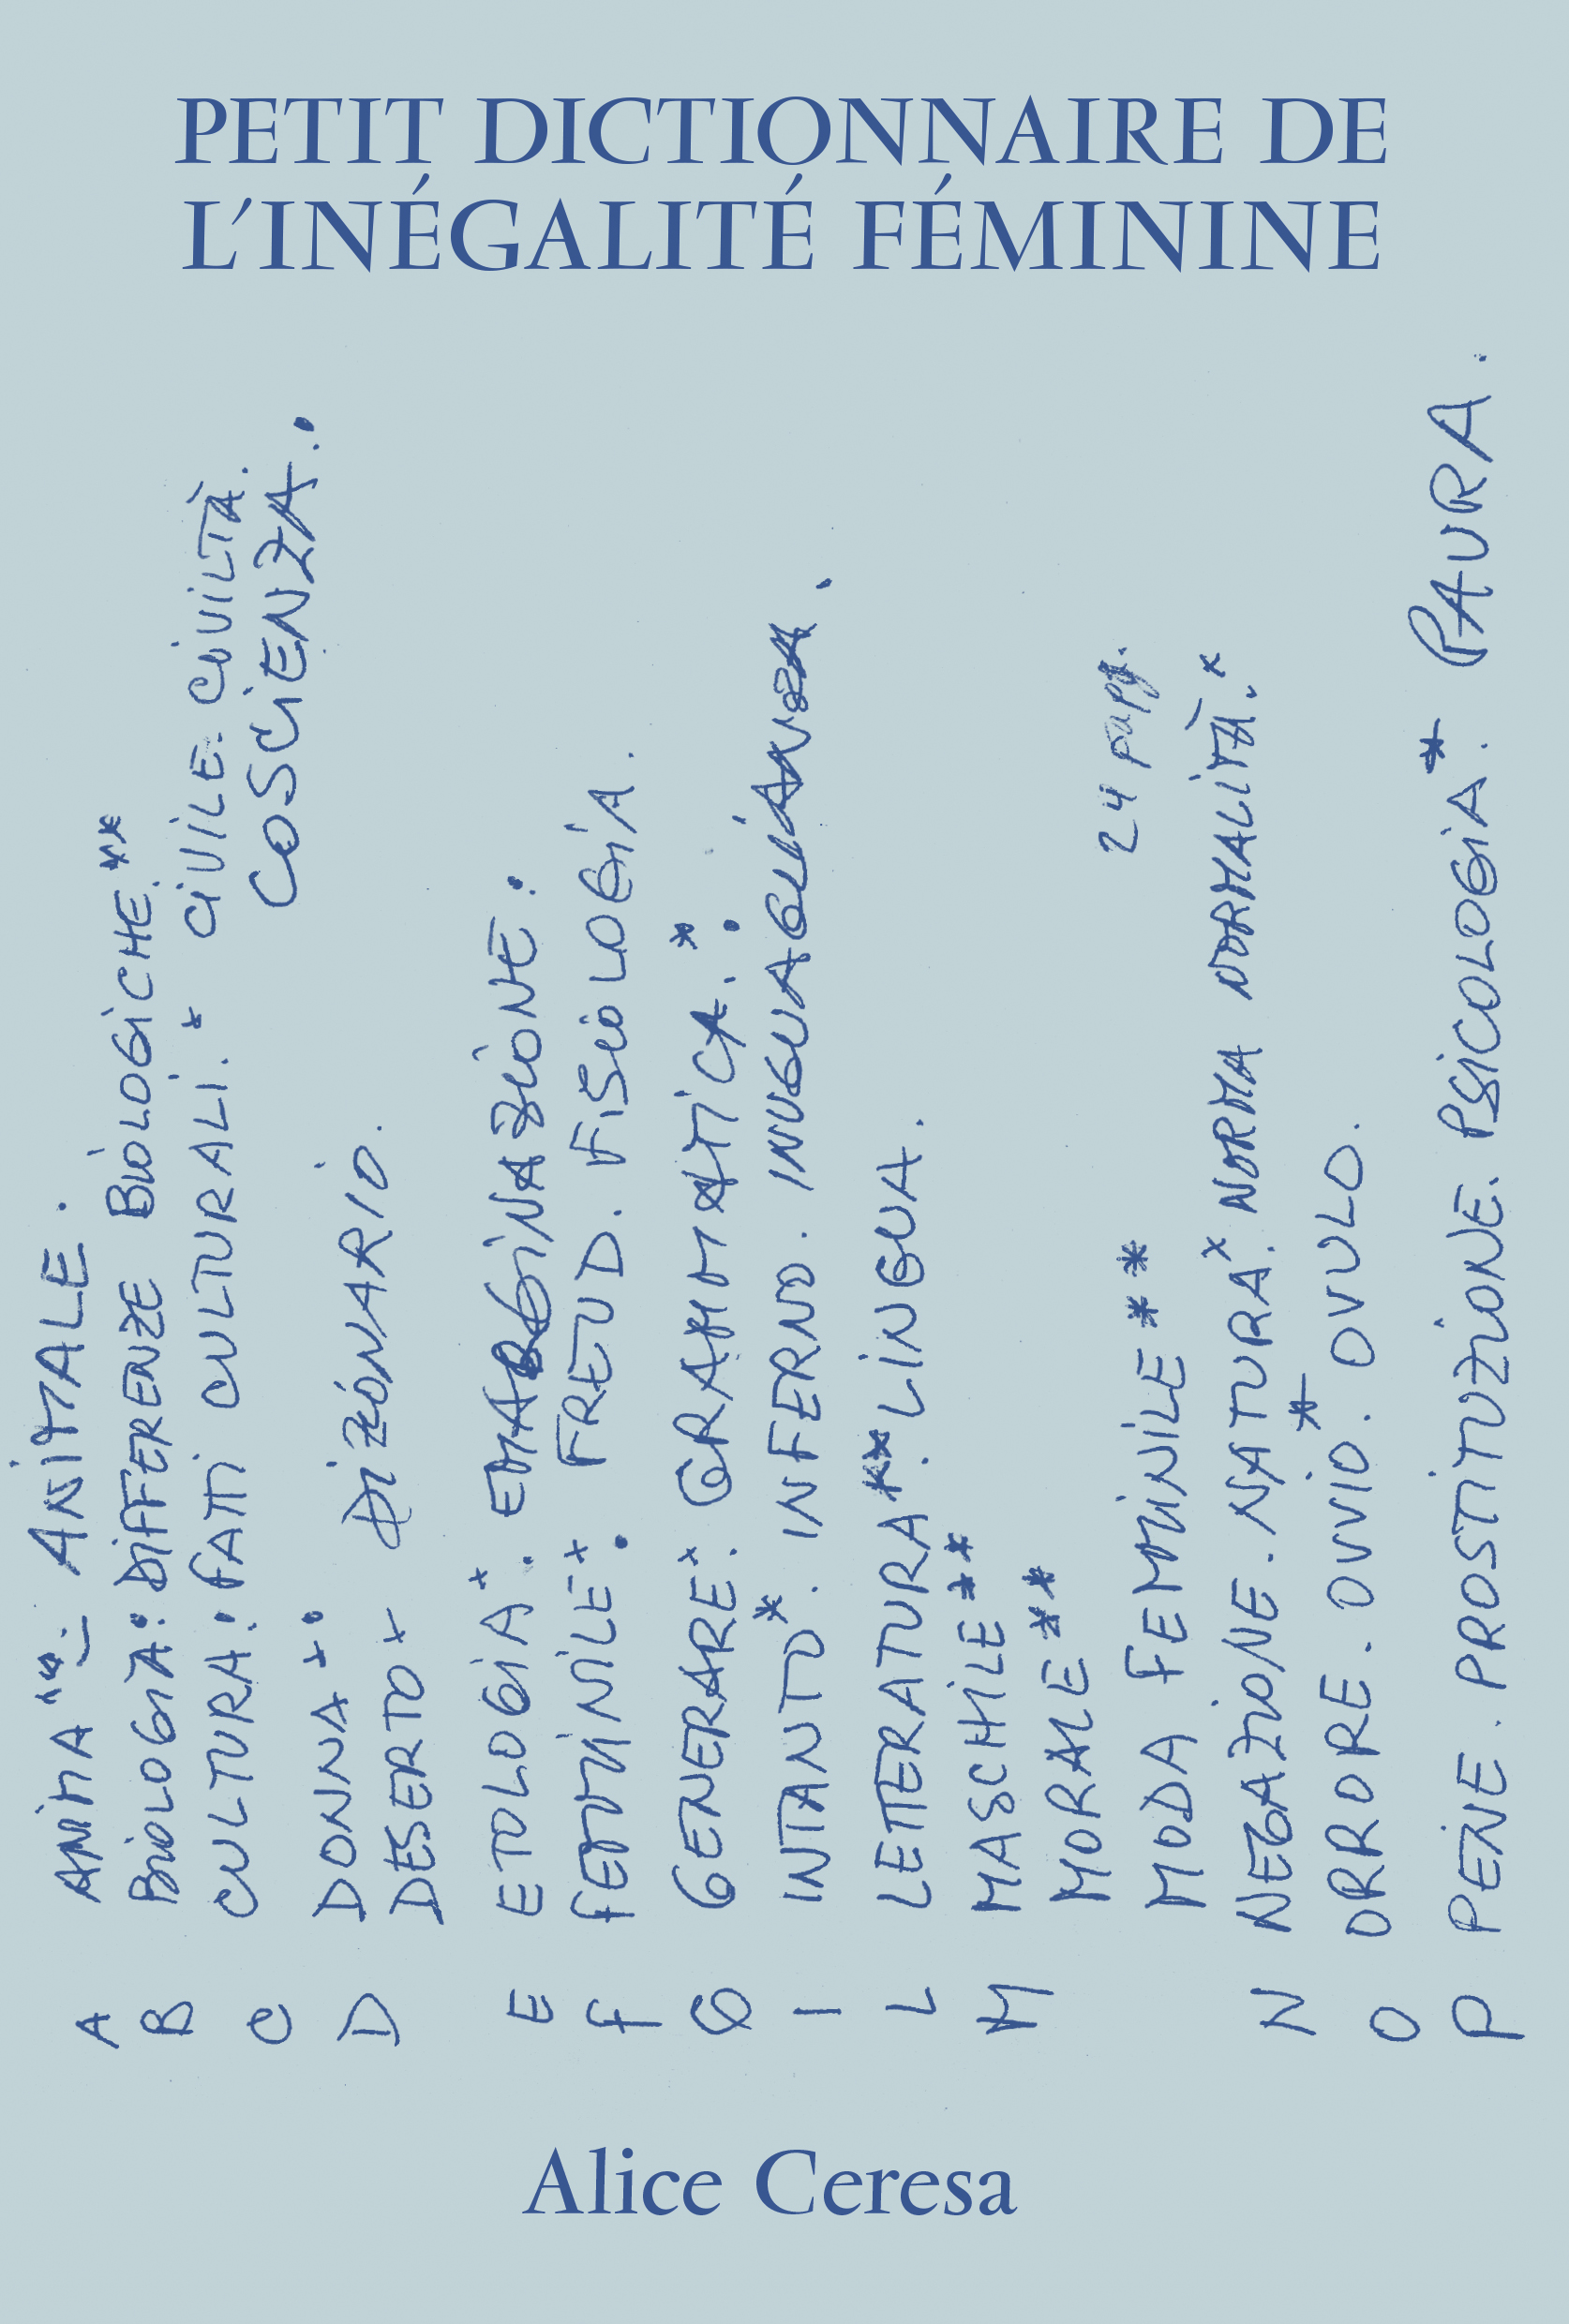 PETIT DICTIONNAIRE DE
L'INÉGALITÉ FÉMININE
A ANIMA**. ANIMALE.
B BIOLOGIA: DIFFERENZE BIOLOGICHE.**
C CULTURA: FATTI CULTURALI.* CIVILE. CIVILTÀ.
COSCIENZA.
D DONNA**. DIZIONARIO.
DESERTO*
E ETOLOGIA*. EMARGINAZIONE.
F FEMMINILE*. FREUD. FISIOLOGIA.
G GENERARE*. GRAMMATICA.*
I INTANTO*. INFERNO. INUGUAGLIANZA.
L LETTERATURA**. LINGUA.
M MASCHILE**
MORALE**
MODA FEMMINILE** 24 papg.
N NEGAZIONE. NATURA*. NORMA NORMALITÀ.*
O ORRORE. OVVIO*. OVULO.
P PENE. PROSTITUZIONE. PSICOLOGIA*. PAURA.
Alice Ceresa